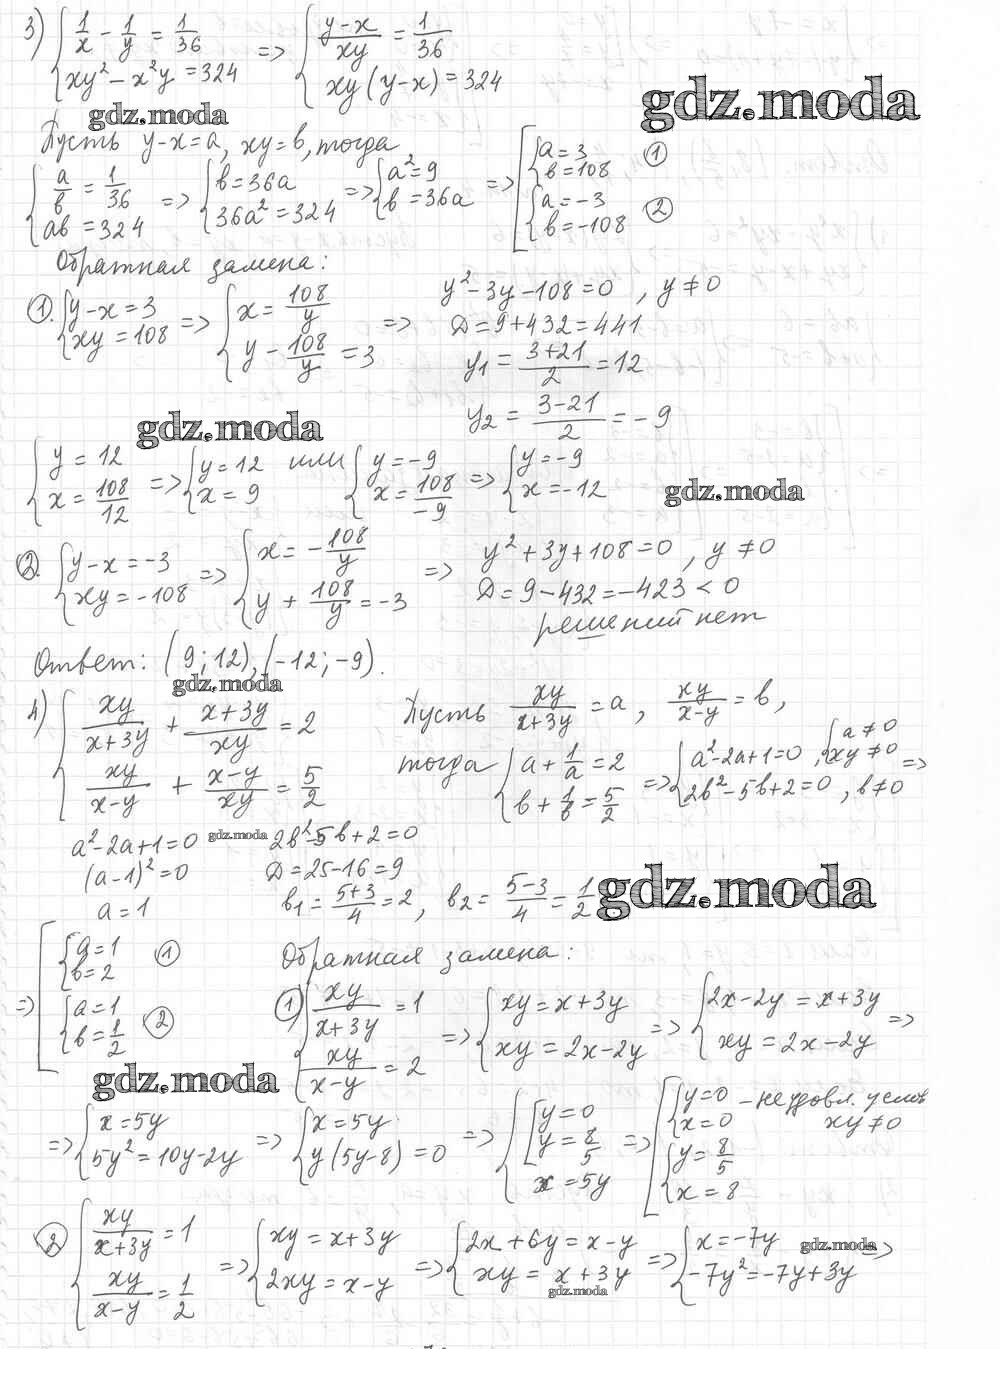 3) { 1/x - 1/y = 1/36 ; xy² - x²y = 324 => { (y-x)/xy = 1/36 ; xy(y-x) = 324
gdz.moda
gdz.moda
Пусть y-x=a, xy=b, тогда
{ a/b = 1/36 ; ab = 324 => { b=36a ; 36a²=324 => { a²=9 ; b=36a => [ { a=3 ; b=108 (1) { a=-3 ; b=-108 (2)
Обратная замена:
(1). { y-x=3 ; xy=108 => { x = 108/y ; y - 108/y = 3 => y²-3y-108=0, y≠0
D=9+432=441
y1 = (3+21)/2 = 12
y2 = (3-21)/2 = -9
gdz.moda
{ y=12 ; x = 108/12 => { y=12 ; x=9 или { y=-9 ; x = 108/-9 => { y=-9 ; x=-12
gdz.moda
(2). { y-x=-3 ; xy=-108 => { x = -108/y ; y + 108/y = -3 => y²+3y+108=0, y≠0
D=9-432=-423<0
решений нет
Ответ: (9;12), (-12;-9).
gdz.moda
4) { xy/(x+3y) + (x+3y)/xy = 2 ; xy/(x-y) + (x-y)/xy = 5/2 Пусть xy/(x+3y) = a, xy/(x-y) = b,
тогда { a + 1/a = 2 ; b + 1/b = 5/2 => { a²-2a+1=0, { a≠0 ; xy≠0 ; 2b²-5b+2=0, b≠0 =>
a²-2a+1=0 gdz.moda 2b²-5b+2=0
(a-1)²=0 D=25-16=9
a=1 b1 = (5+3)/4 = 2, b2 = (5-3)/4 = 1/2
gdz.moda
=> [ { a=1 ; b=2 (1) { a=1 ; b=1/2 (2)
Обратная замена:
(1) { xy/(x+3y) = 1 ; xy/(x-y) = 2 => { xy=x+3y ; xy=2x-2y => { 2x-2y=x+3y ; xy=2x-2y =>
gdz.moda
=> { x=5y ; 5y²=10y-2y => { x=5y ; y(5y-8)=0 => { [ y=0 ; y=8/5 ; x=5y => [ { y=0 ; x=0 - не удовл. услов xy≠0 { y=8/5 ; x=8
(2) { xy/(x+3y) = 1 ; xy/(x-y) = 1/2 => { xy=x+3y ; 2xy=x-y => { 2x+6y=x-y ; xy=x+3y => { x=-7y ; -7y²=-7y+3y =>
gdz.moda
gdz.moda